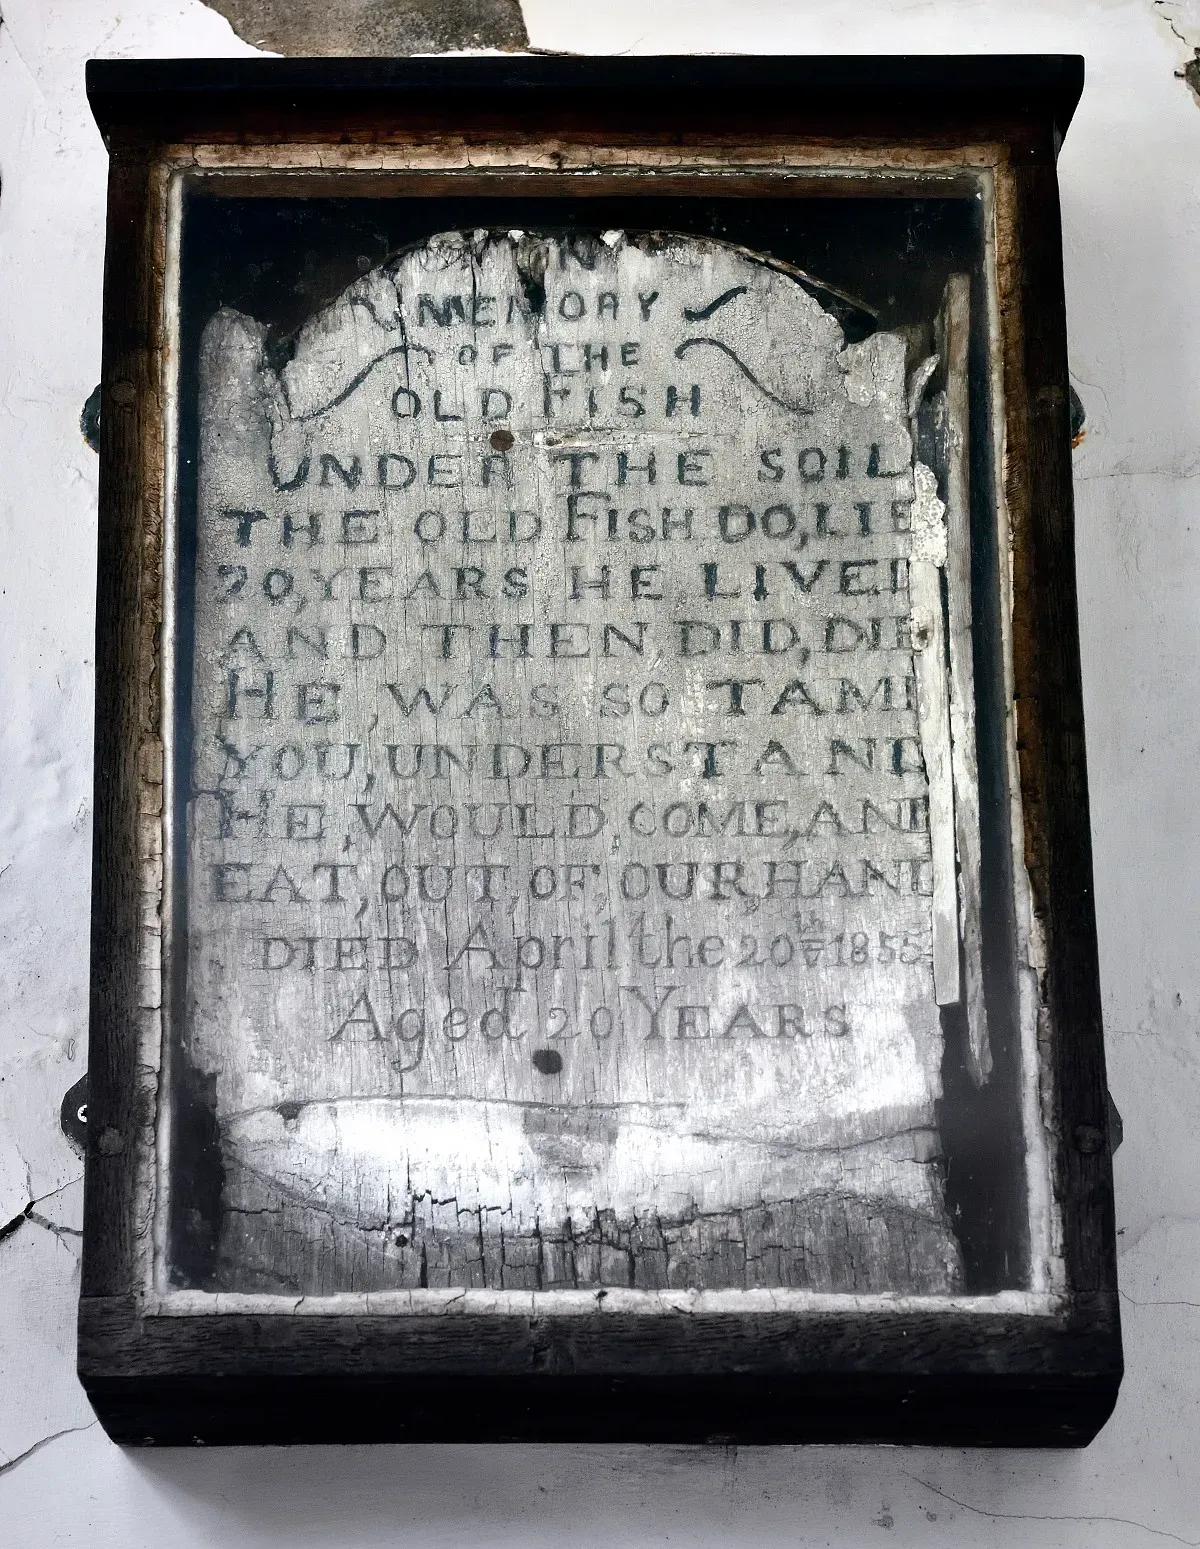 IN
MEMORY
OF THE
OLD FISH
UNDER THE SOIL
THE OLD FISH DO,LIE
20,YEARS HE LIVED
AND THEN,DID,DIE
HE ,WAS SO TAME
YOU,UNDERSTAND
HE,WOULD,COME,AND
EAT,OUT,OF,OUR,HAND
DIED April the 20th 1855
Aged 20 YEARS